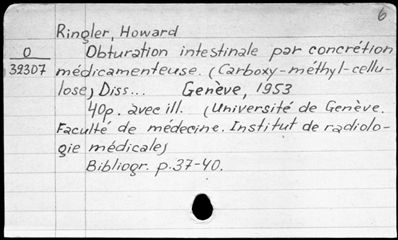 6
Ringler, Howard
O Obturation intestinale par concrétion
39307 médicamenteuse. (Carboxy-méthyl-cellu-
lose) Diss... Genève, 1953
40p. avec ill. (Université de Genève.
Faculté de médecine. Institut de radiolo-
gie médicale)
Bibliogr. p.37-40.